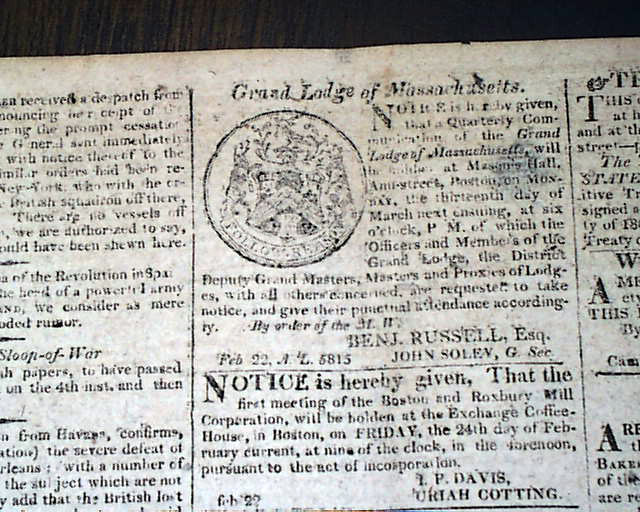 received a despatch from
nouncing her receipt of
ering the prompt cessation
General sent immediately
with notice thereof to the
similar orders had been re-
New-York, who with the
British squadron off there,
There are no vessels off
we are authorized to say,
ould have been shewn here.
of the Revolution in Spai
he head of a powerful army
and, we consider as mere
oded rumor.
Sloop-of-War
sh papers, to have passed
on the 4th inst. and then
from Havana, confirms,
the severe defeat of
rleans; with a number of
the subject which are not
y add that the British lost
Grand Lodge of Massachusetts.
NOTICE is hereby given,
that a Quarterly Com-
munication of the Grand
Lodge of Massachusetts, will
be holden at Masons' Hall,
Ann-street, Boston, on MON-
DAY, the thirteenth day of
March next ensuing, at six
o'clock, P. M. of which the
Officers and Members of the
Grand Lodge, the District
Deputy Grand Masters, Masters and Proxies of Lodg-
es, with all others concerned, are requested to take
notice, and give their punctual attendance according-
ly. By order of the M. W.
BENJ. RUSSELL, Esq.
Feb 22, A. L. 5815 JOHN SOLEY, G. Sec.
NOTICE is hereby given, That the
first meeting of the Boston and Roxbury Mill
Corporation, will be holden at the Exchange Coffee-
House, in Boston, on FRIDAY, the 24th day of Feb-
ruary current, at nine of the clock, in the forenoon,
pursuant to the act of incorporation.
I. P. DAVIS,
feb 22 URIAH COTTING.
THIS
at
and at th
street
The
STATE
itive T
signed
ty of 18
Treaty
W
A M
THIS
Cam
ARE
BAKER
of the
are re